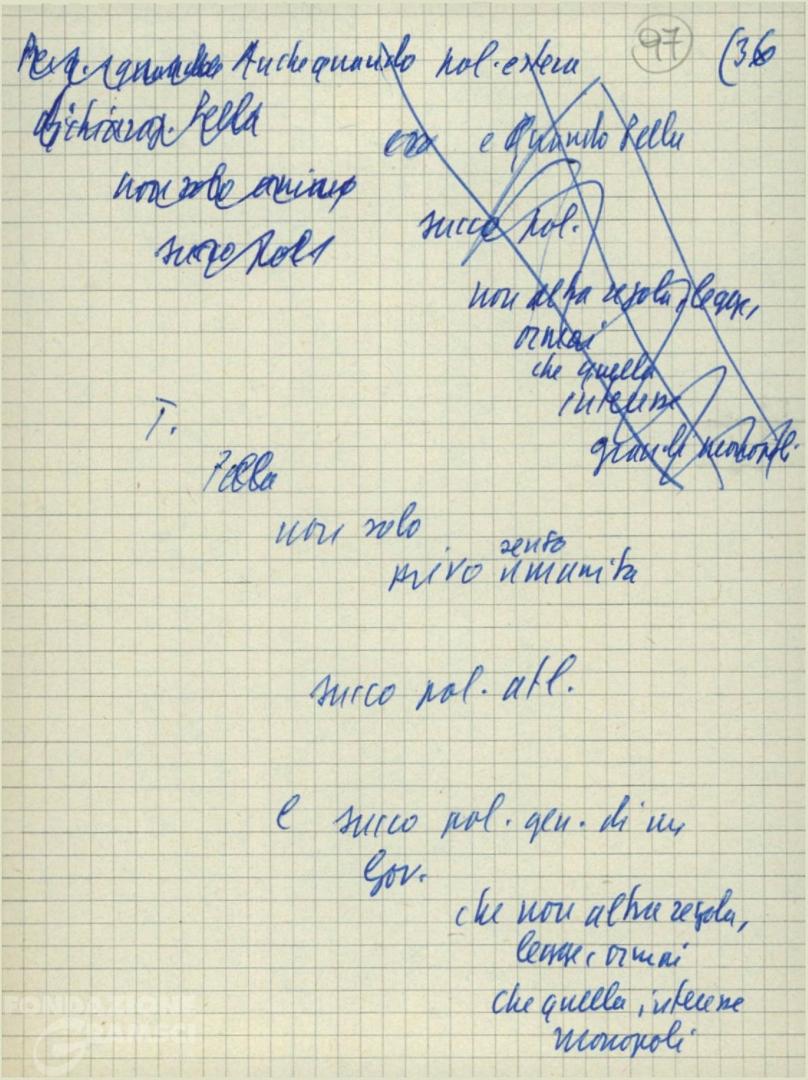 Anche quando pol. estera 97 (36
dichiaraz. Pella
e Quando Pella
non solo
succo pol.
succo
non altra regola, legge,
ormai
che quella
interesse
grandi monopoli
T.
Pella
non solo
senso
privo umanità
succo pol. atl.
e succo pol. gen. di un
Gov.
che non altra regola,
legge, ormai
che quella, interesse
monopoli
FONDAZIONE
GRAMSCI